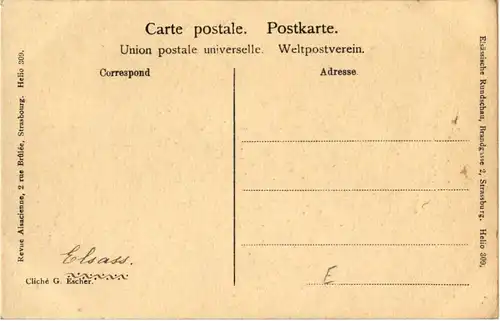 Carte postale. Postkarte.
Union postale universelle. Weltpostverein.
Correspond
Adresse
Revue Alsacienne, 2 rue Brûlée, Strasbourg. Helio 309.
Elsässische Rundschau, Brandgasse 2, Strassburg. Helio 309.
Elsass.
Cliché G. Escher.
E